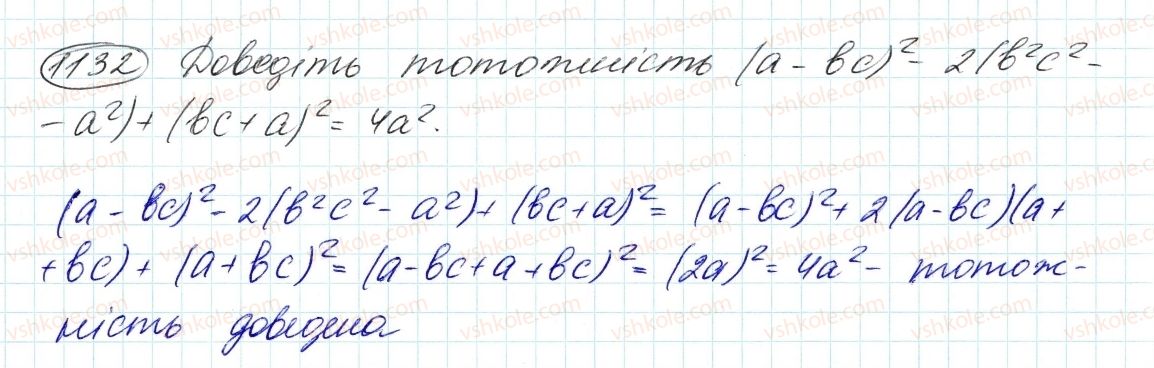 1132 Доведіть тотожність (a - bc)² - 2(b²c² -
- a²) + (bc + a)² = 4a².
(a - bc)² - 2(b²c² - a²) + (bc + a)² = (a - bc)² + 2(a - bc)(a +
+ bc) + (a + bc)² = (a - bc + a + bc)² = (2a)² = 4a² - тотож-
ність доведена